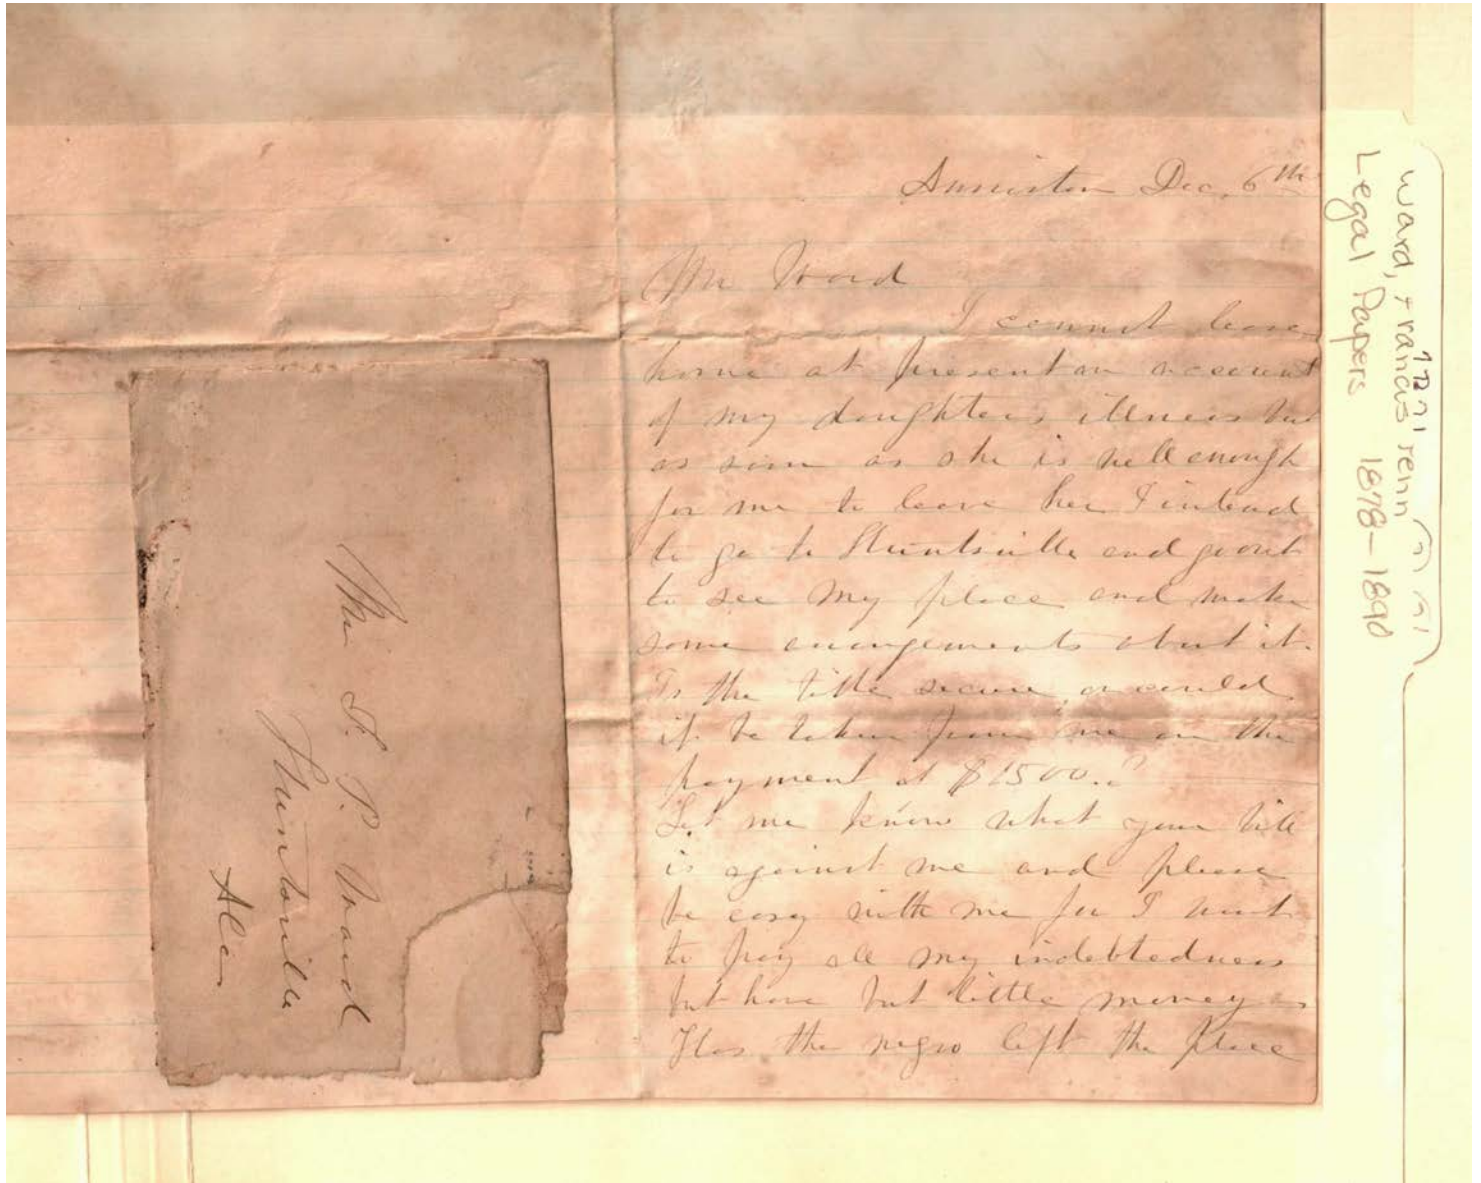 Anniston Dec. 6th
Mr Ward
I cannot leave
home at present on account
of my daughters illness but
as soon as she is well enough
for me to leave her I intend
to go to Huntsville and go out
to see my place and make
some arrangements about it.
Is the title secure or could
it be taken from me on the
payment of $1500.?
Let me know what your bill
is against me and please
be easy with me for I want
to pay all my indebtedness
but have but little money
Has the negro left the place
Mr S. P. Ward
Huntsville
Ala
Ward, Francis Fenn
Legal Papers 1878-1890